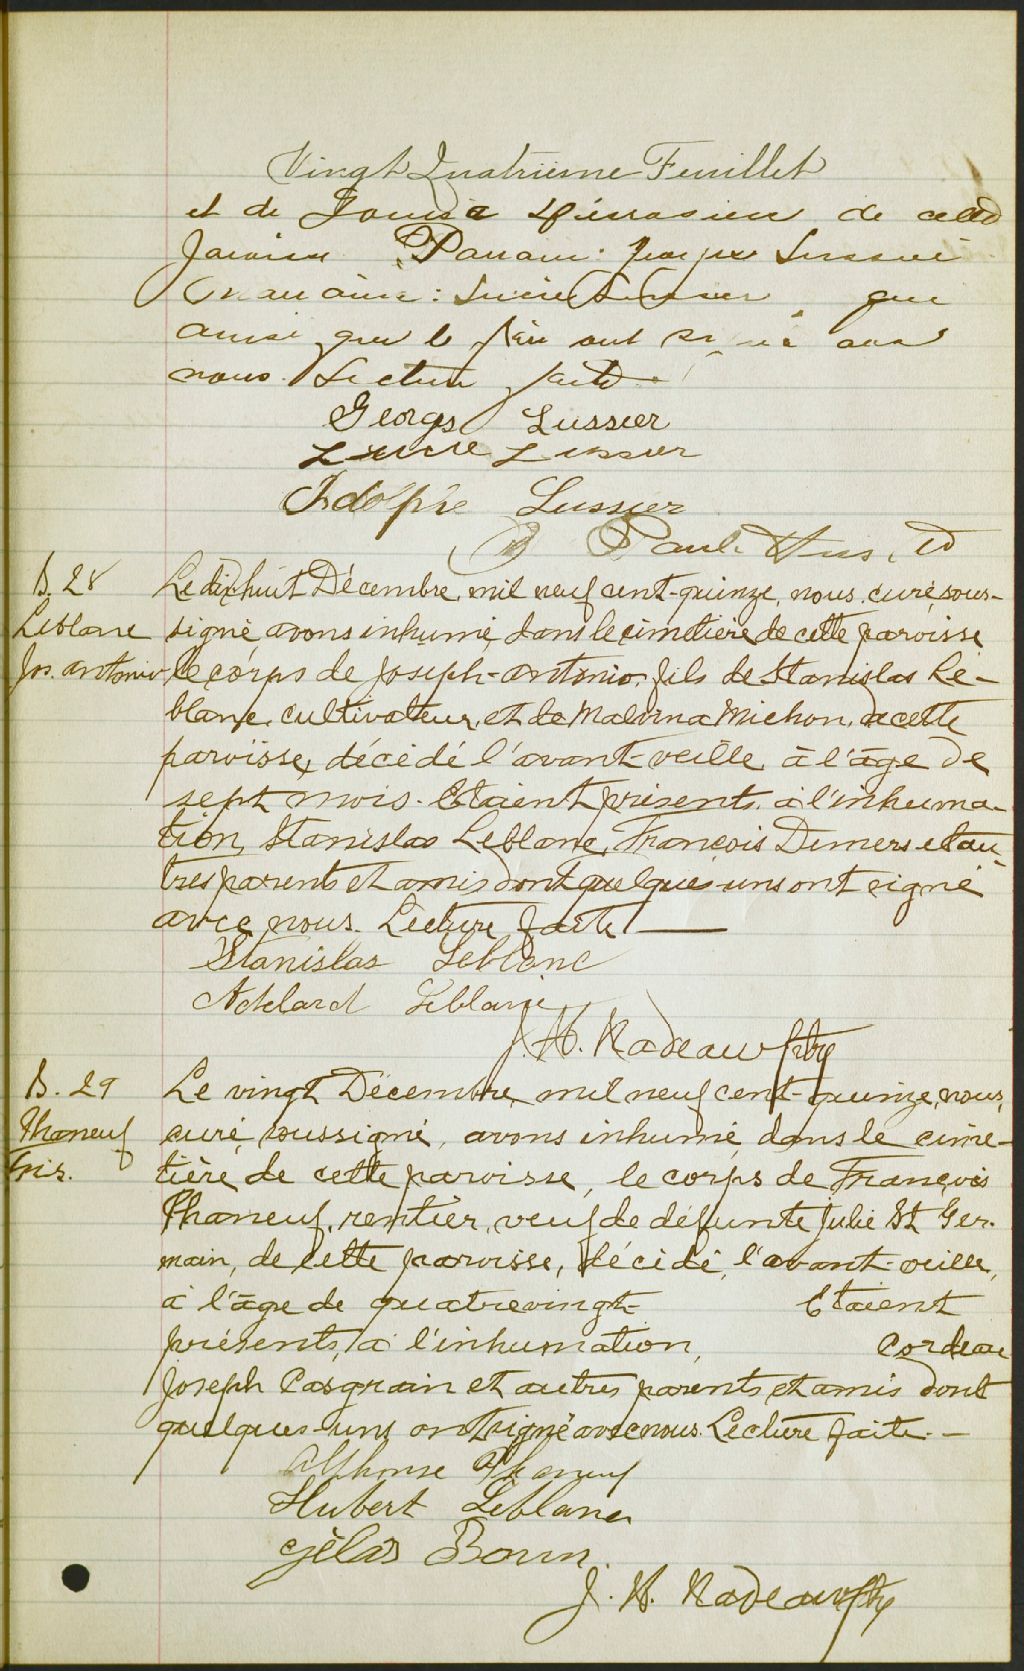 Vingt Quatrième Feuillet
et de Louisa de cette
Paroisse Parrain: Lussier
Marraine: Lucie Lussier qui
ainsi que le père ont signé avec
nous. Lecture faite.
Georges Lussier
Lucie Lussier
Adolphe Lussier
Paul Hus
S. 28
Leblanc
Jos. Antonio
Le dix huit Décembre, mil neuf cent-quinze, nous, curé, sous-
signé, avons inhumé, dans le cimetière de cette paroisse
le corps de Joseph-Antonio, fils de Stanislas Le-
blanc, cultivateur, et de Malvina Michon, de cette
paroisse, décédé l'avant-veille, à l'âge de
sept mois. Etaient présents, à l'inhuma-
tion, Stanislas Leblanc, François Demers et au-
tres parents et amis dont quelques-uns ont signé
avec nous. Lecture faite
Stanislas Leblanc
Adelard Leblanc
J. H. Nadeau ptre
S. 29
Phaneuf
Frs.
Le vingt Décembre, mil neuf cent-quinze, nous,
curé, soussigné, avons inhumé, dans le cime-
tière, de cette paroisse, le corps de François
Phaneuf, rentier, veuf de défunte Julie St Ger-
main, de cette paroisse, décédé, l'avant-veille,
à l'âge de quatrevingt- Etaient
présents, à l'inhumation, Cordeau
Joseph Casgrain et autres parents et amis dont
quelques-uns ont signé avec nous. Lecture faite. —
Alphonse Phaneuf
Hubert Leblanc
Gélas
J. H. Nadeau ptre